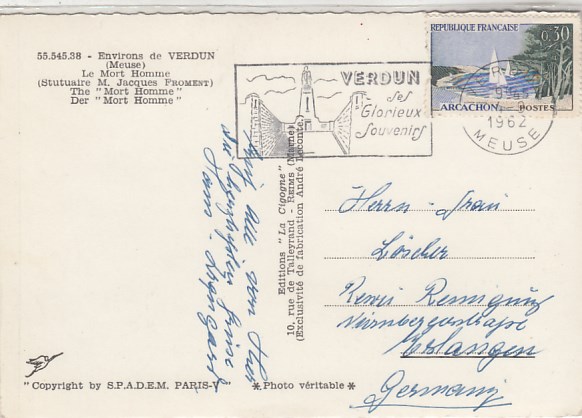 55.545.38 - Environs de VERDUN
(Meuse)
Le Mort Homme
(Statuaire M. Jacques FROMENT)
The "Mort Homme"
Der "Mort Homme"
VERDUN
Ses
Glorieux
Souvenirs
RÉPUBLIQUE FRANÇAISE
0,30
ARCACHON
POSTES
1962
MEUSE
Editions "La Cigogne"
10, rue de Talleyrand - REIMS (Marne)
(Exclusivité de fabrication André Leconte.)
von hier
Hans
Herrn - Frau
Löscher
Reinigung
Nürnbergerstraße
Erlangen
Germany
"Copyright by S.P.A.D.E.M. PARIS-V
*Photo véritable*